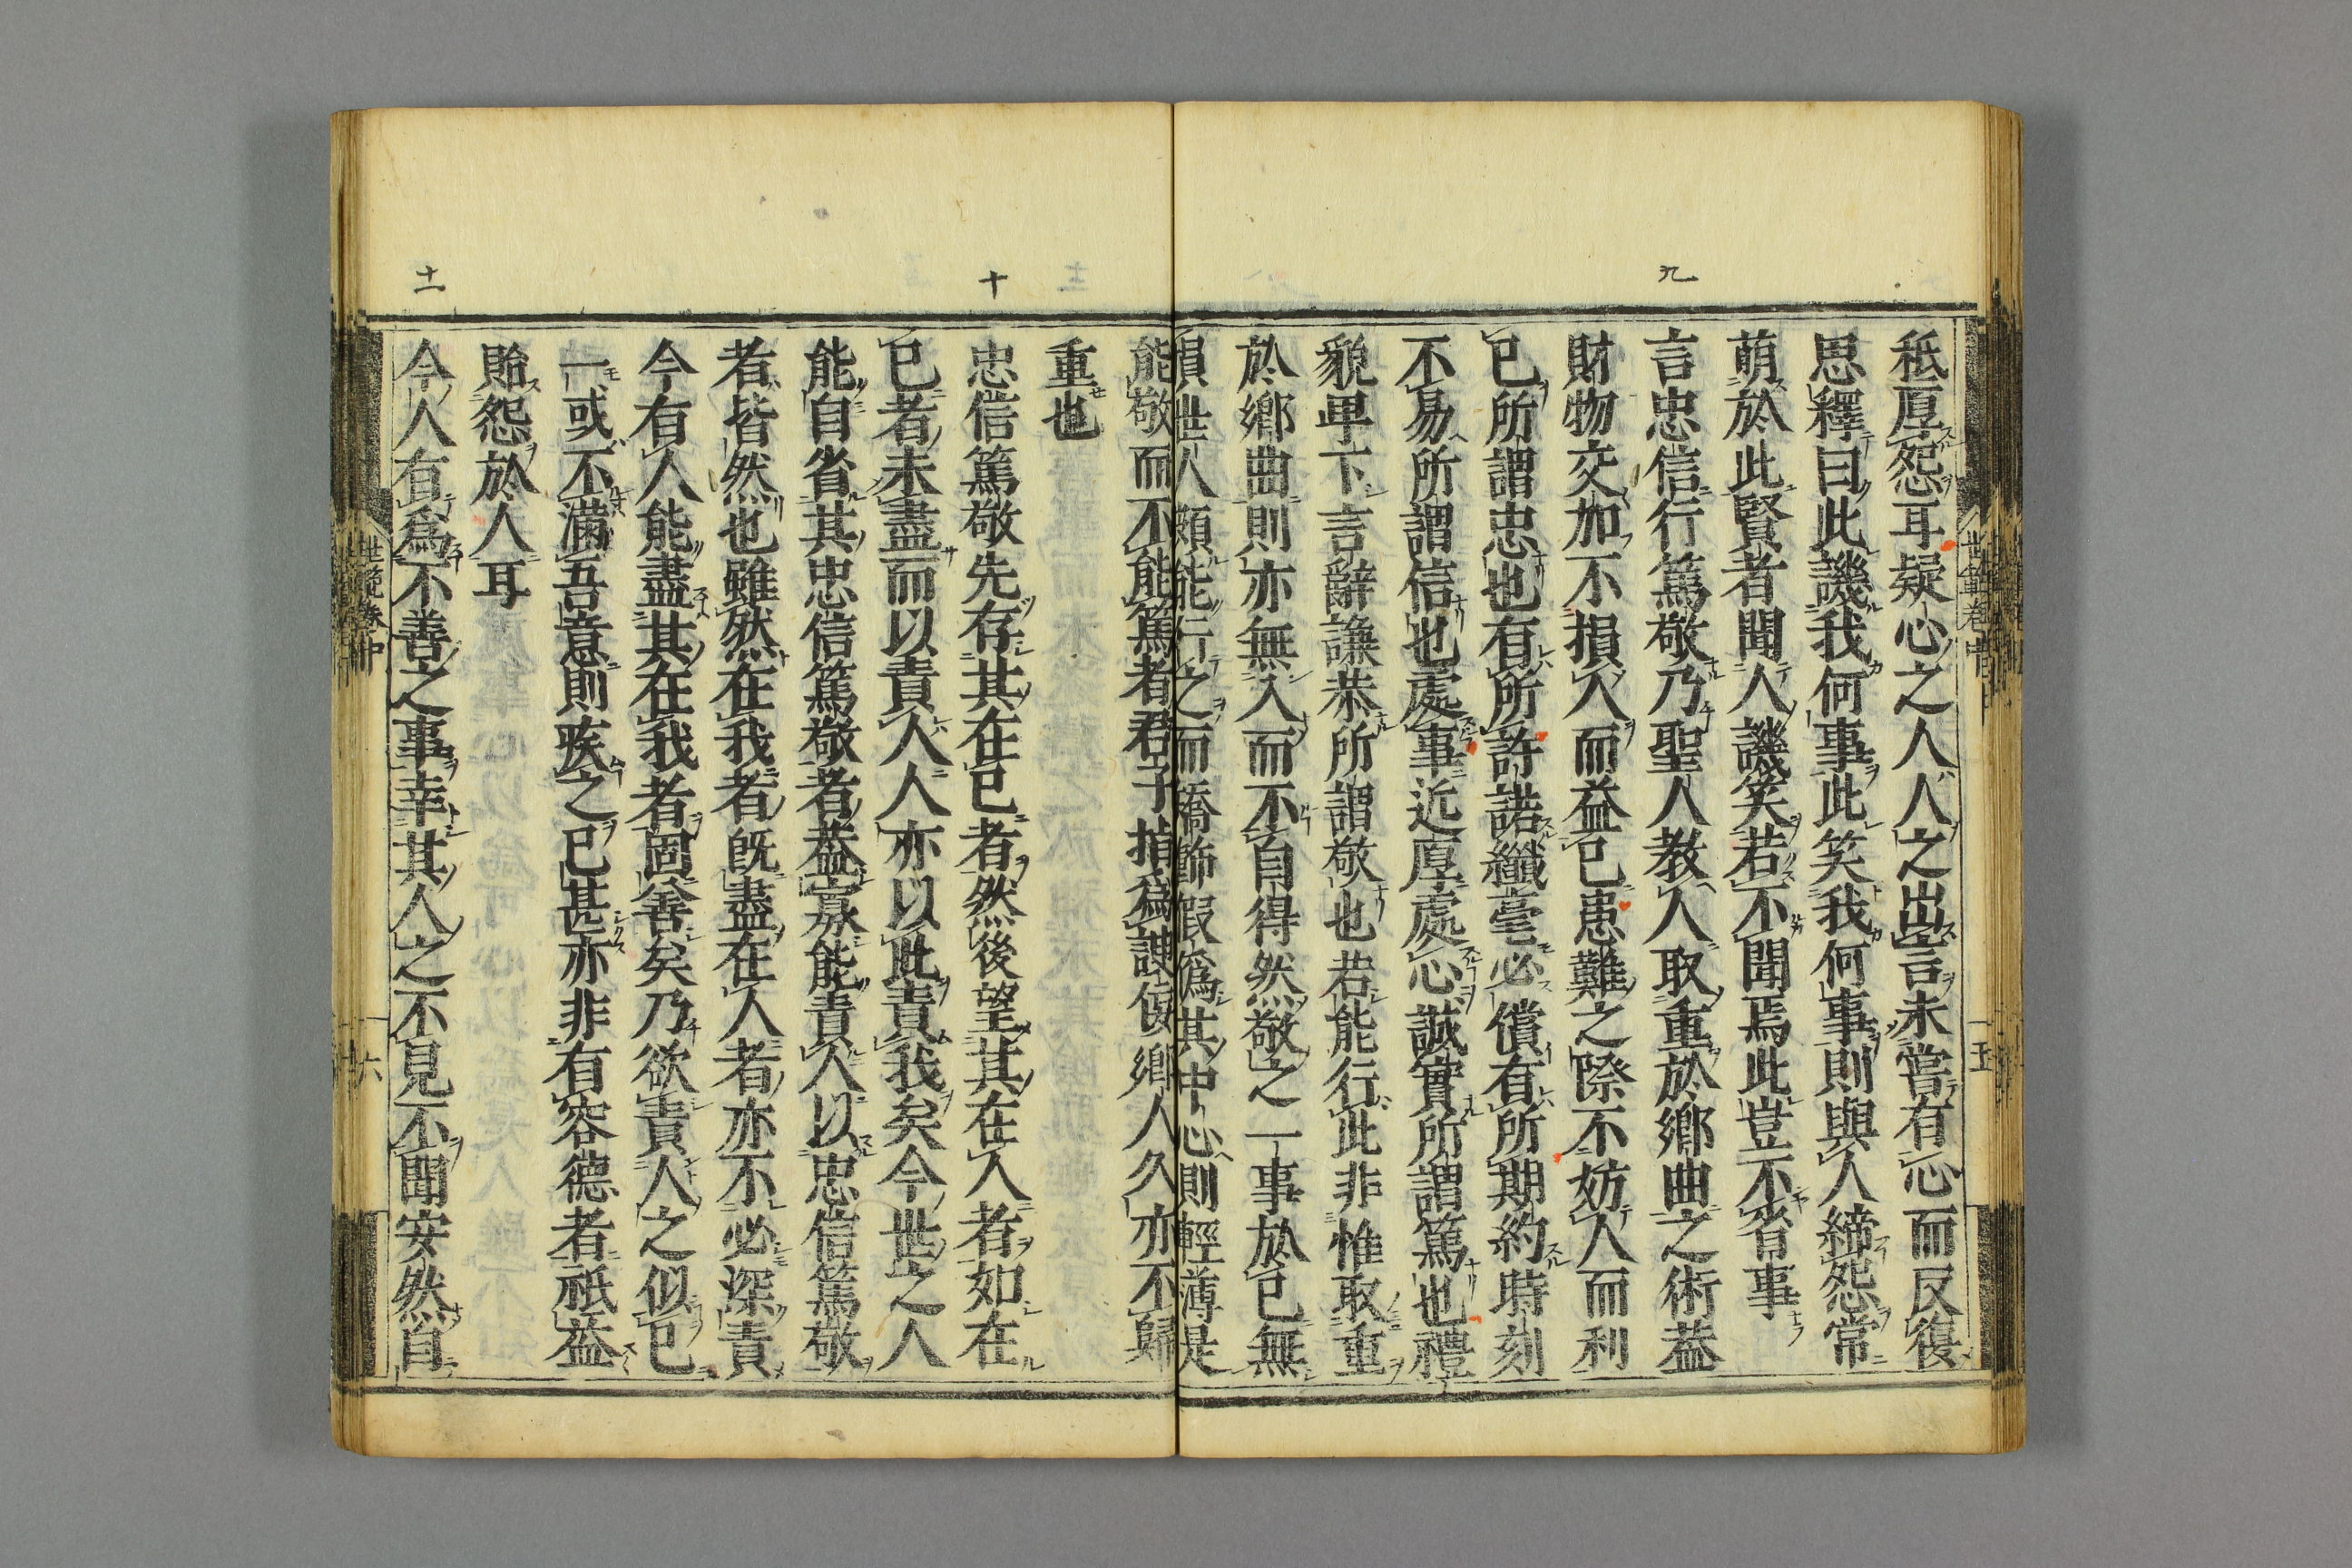 秪厚怨耳疑心之人人之出言未嘗有心而反復
思釋曰此譏我何事此笑我何事則與人締怨常
萌於此賢者聞人譏笑若不聞焉此豈不省事
九
言忠信行篤敬乃聖人教人取重於鄉曲之術葢
財物交加不損人而益己患難之際不妨人而利
己所謂忠也有所許諾纖毫必償有所期約時刻
不易所謂信也處事近厚處心誠實所謂篤也禮
貌卑下言辭謙恭所謂敬也若能行此非惟取重
於鄉曲則亦無入而不自得然敬之一事於己無
損世人頗能行之而矯飾假僞其中心則輕薄是
世範卷中
十五
能敬而不能篤者君子指爲諛佞鄉人久亦不歸
重也
十
忠信篤敬先存其在己者然後望其在人者如在
己者未盡而以責人人亦以此責我矣今世之人
能自省其忠信篤敬者葢寡能責人以忠信篤敬
者皆然也雖然在我者既盡在人者亦不必深責
今有人能盡其在我者固善矣乃欲責人之似己
一或不滿吾意則疾之已甚亦非有容德者祇益
貽怨於人耳
十一
今人有爲不善之事幸其人之不見不聞安然自
世範卷中
十六